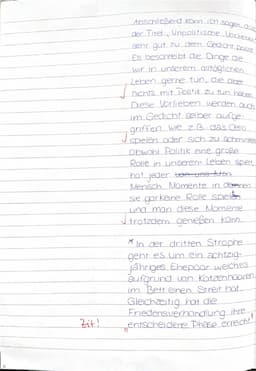 Anschließend kann ich sagen, dass
der Titel „Unpolitische Vorlieben“
sehr gut zu dem Gedicht passt.
Es beschreibt die Dinge die
wir in unserem alltäglichen
Leben gerne tun, die aber
nichts mit Politik zu tun haben.
Diese Vorlieben werden auch
im Gedicht selber aufge-
griffen wie z.B. das
spielen oder sich zu schminken.
obwohl Politik eine große
Rolle in unserem Leben spielt,
hat jeder
Mensch Momente in denen
sie garkeine Rolle spielt
und man diese Momente
trotzdem genießen kann.
* In der dritten Strophe
geht es um ein achtzig-
jähriges Ehepaar welches
aufgrund von Katzenhaaren
im Bett einen Streit hat.
Gleichzeitig hat die
Friedensverhandlung ihre
Zit.! entscheidene Phase erreicht!